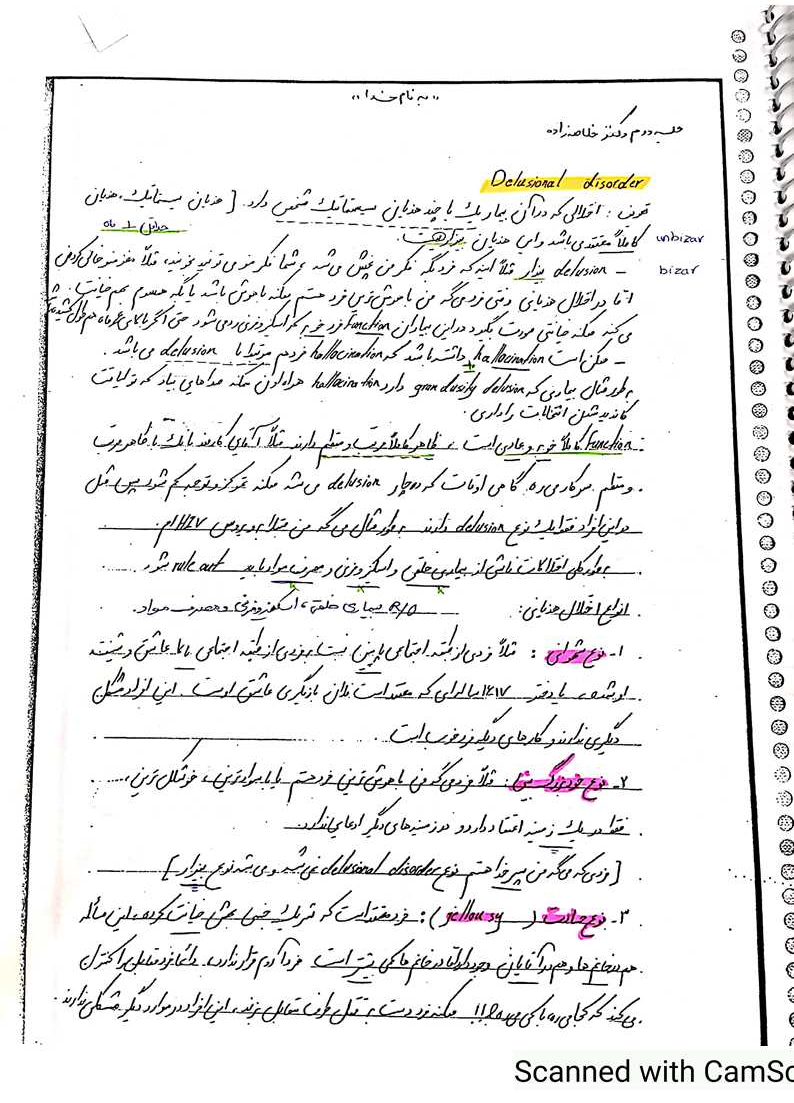 «به نام خدا»
جلسه دوم دکتر خلاصه‌زاده
Delusional disorder
تعریف : اختلالی که در آن بیمار یک یا چند هذیان سیستماتیک مشخص دارد. [ هذیان سیستماتیک، هذیان
حداقل ۱ ماه
کاملاً معتقدی باشد و این هذیان بیزار نیست. unbizar
– delusion بیزار مثلاً اینه که فرد بگه فکر من پخش می‌شه، شما فکر منو می‌تونید بخونید، مثلاً مغز منو خالی کردن bizar
اما در اختلال هذیانی وقتی فردی که من باهوش‌ترین فرد هستم ممکنه باهوش باشد یا اگه همسرم بهم خیانت
می‌کند ممکنه خیانتی صورت بگیرد در این بیماران Function فرد خوبه که اسکیزوفرنی رد می‌شود حتی اگر
– ممکن است hallocination داشته باشد که hallocination فرد هم مرتبط با delusion می‌باشد.
به طور مثال بیماری که grandusity delusion دارد hallocination همراه اون ممکنه صداهایی بیاد که تو لیاقت
کاندید شدن انتخابات را داری.
– Function کاملاً خوب و عادی است، ظاهر کاملاً مرتب و منظم دارند مثلاً آقای کارمند بانک با ظاهر مرتب
و منظم سر کار می‌ره. گاهی اوقات که دچار delusion می‌شه ممکنه تمرکز و توجه کم شود پس
در این افراد فقط یک نوع delusion دارند به طور مثال می‌گه من مبتلا به ویروس HIV ام.
به طور کلی اختلالات ناشی از بیماری خلقی و اسکیزوفرنی و مصرف مواد باید rule out شود.
انواع اختلال هذیانی: R/O بیماری خلقی، اسکیزوفرنی و مصرف مواد.
۱- نوع شهوانی : مثلاً فردی از طبقه اجتماعی پایین نسبت به فردی از طبقه اجتماعی بالا عاشق و شیفته
او شده، یا دختر ۱۶،۱۷ ساله‌ای که معتقد است فلان بازیگر عاشق اوست. این افراد مشکل
دیگری ندارند و کارهای دیگه فرد خوب است
۲- نوع خود بزرگ بینی: مثلاً فردی که من باهوش‌ترین فرد هستم یا باسوادترین، خوشگل‌ترین،
فقط در یک زمینه اعتقاد دارد و در زمینه‌های دیگر ادعایی ندارد.
[ فردی که می‌گه من پسر خدا هستم نوع delusional disorder نمی‌شه و می‌شه نوع بیزار ]
۳- نوع حسادت ( jellousy ) : فرد معتقد است که شریک جنسی بهش خیانت کرده، این مسأله
هم در خانم‌ها و هم در آقایان وجود دارد اما در خانم‌ها کمی بیشتر است فرد آروم قرار ندارد. دائماً فرد مقابل را کنترل
می‌کند که کجا می‌ره با کی می‌ره و !!! ممکنه فرد دست به قتل طرف مقابل بزند، این افراد در موارد دیگر مشکلی ندارند.
Scanned with CamSc